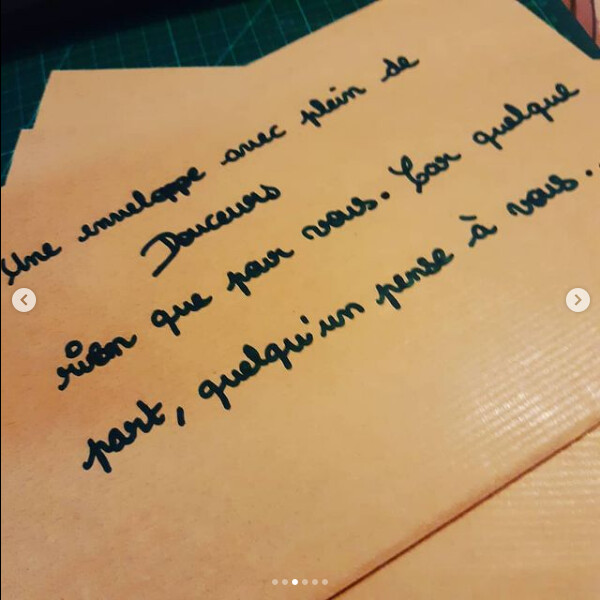 Une enveloppe avec plein de
Douceurs
rien que pour vous. Car quelque
part, quelqu'un pense à vous..